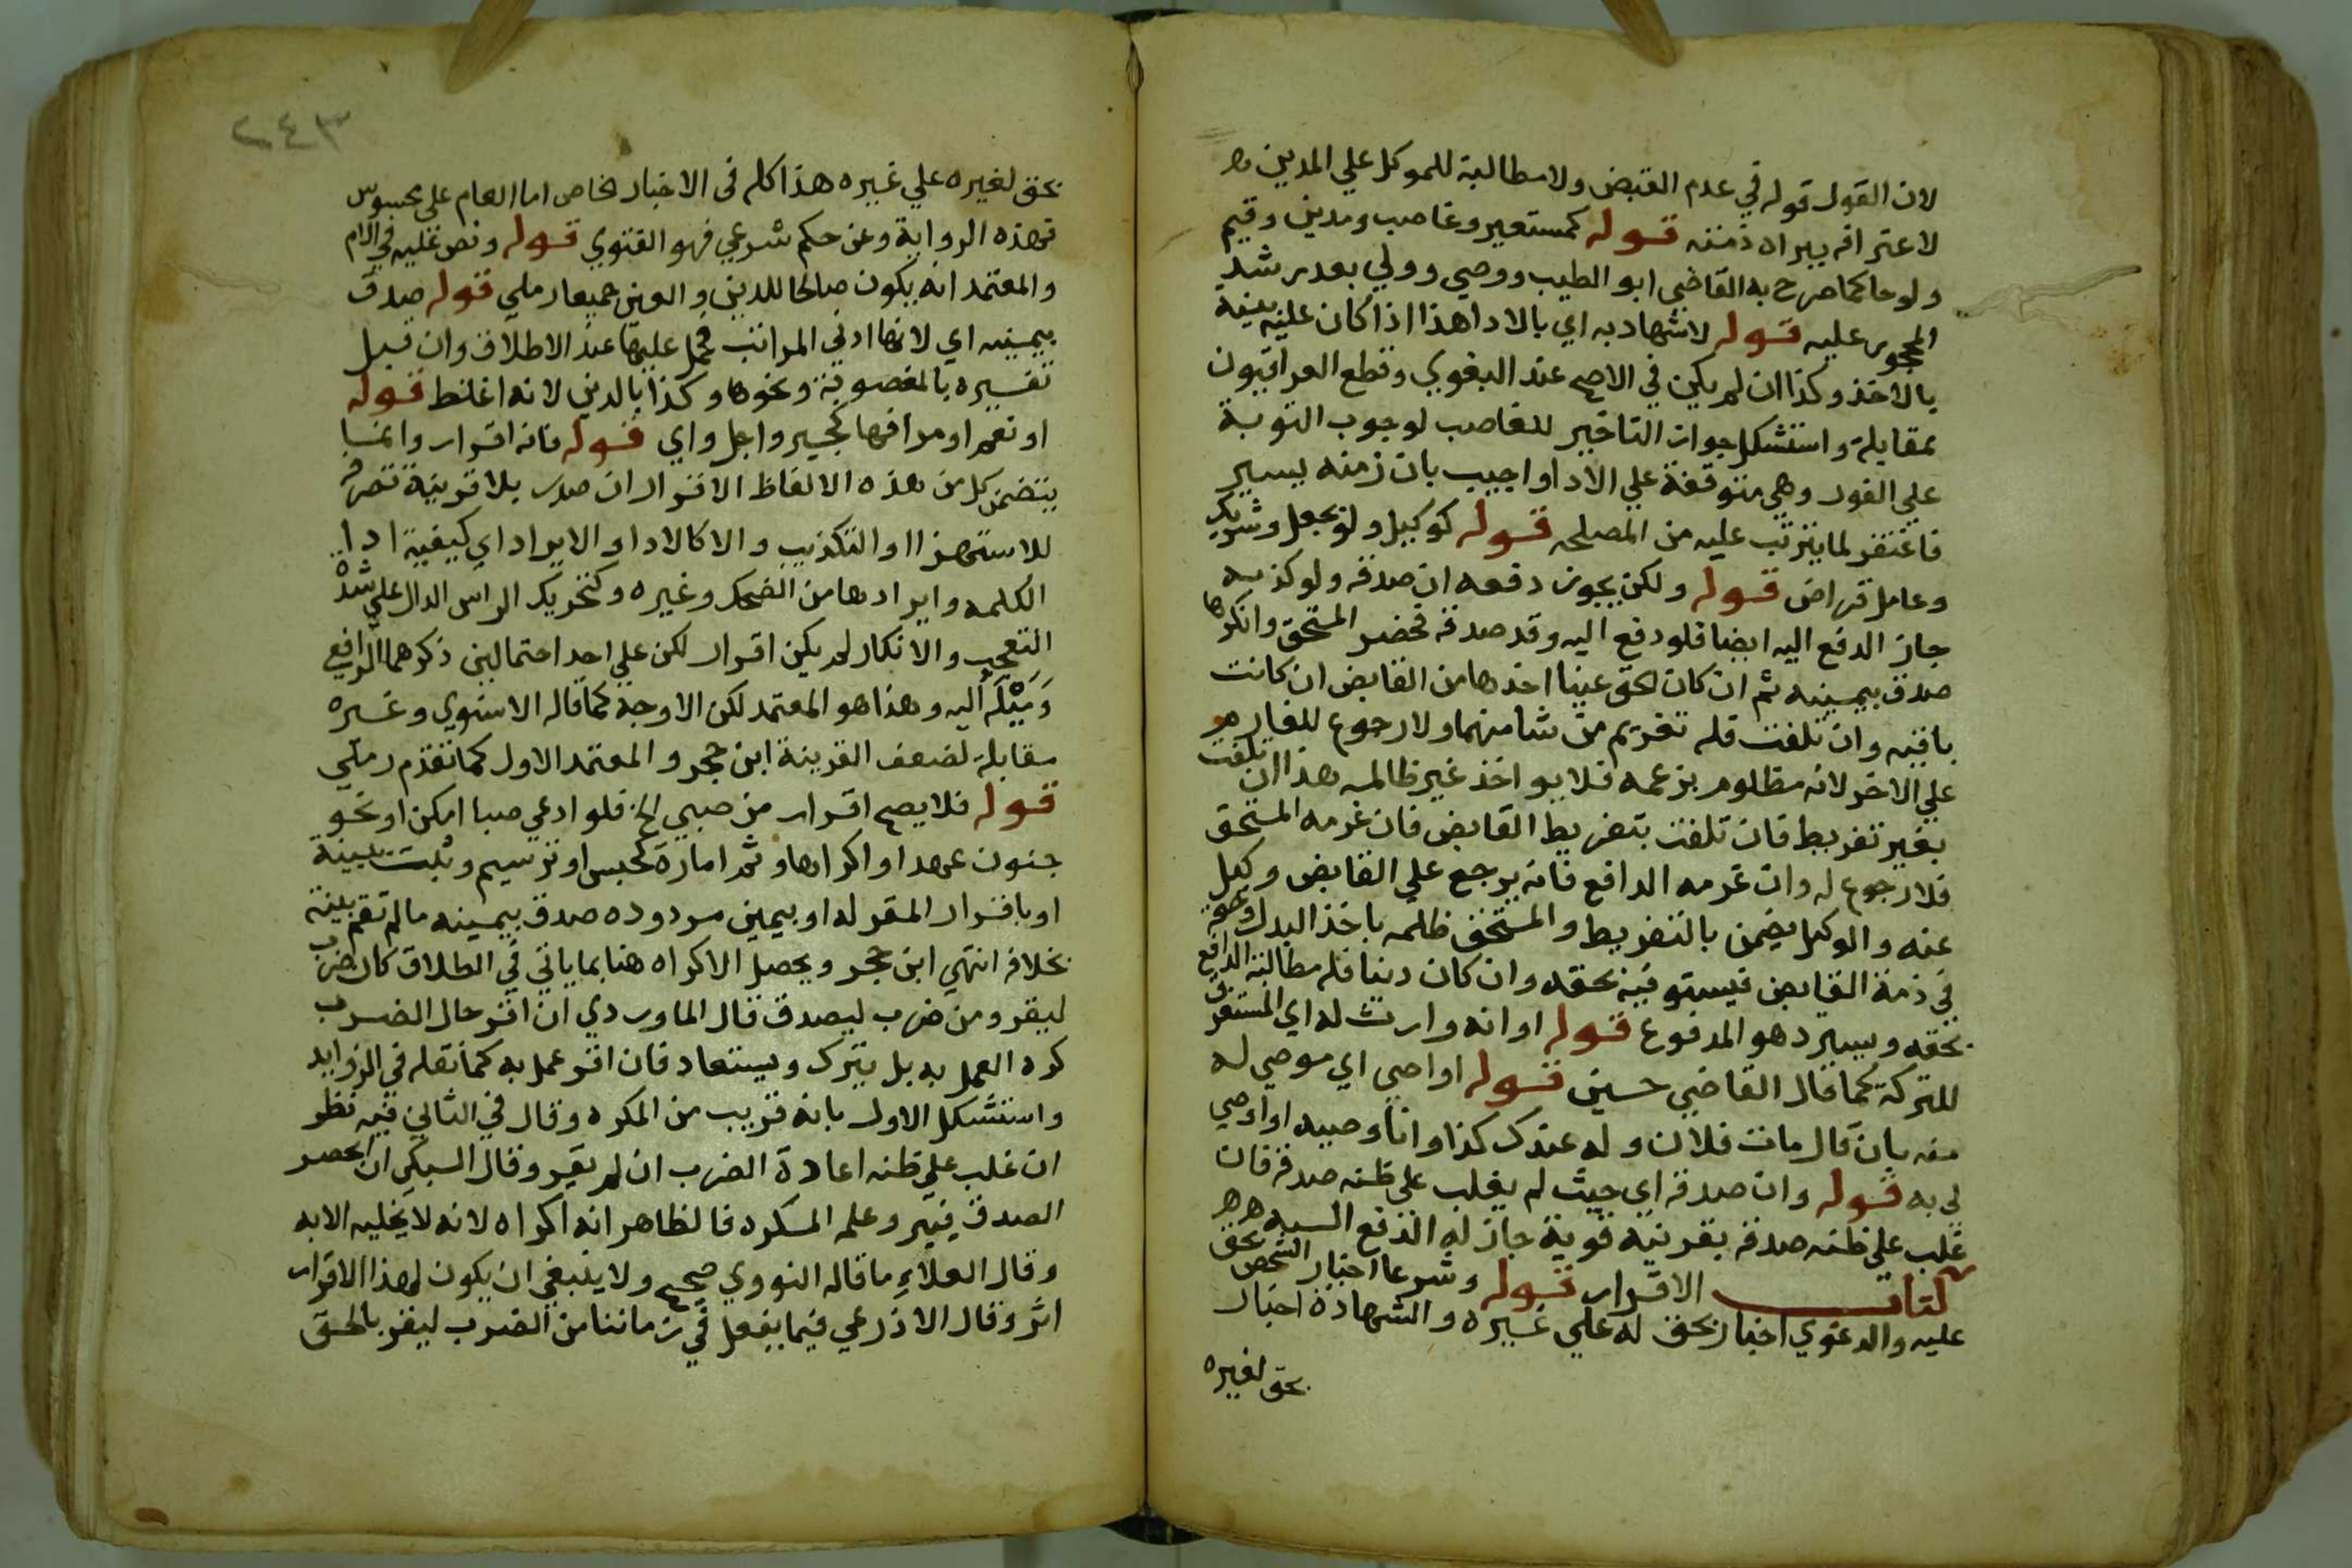 لان القول قوله في عدم القبض ولا مطالبة للموكل علي المدين
لاعترافه ببراه ذمته قوله كمستعير وغاصب ومدين وقيم
ولو حاكما صرح به القاضي ابو الطيب ووصي وولي بعد رشد
المحجور عليه قوله لاشهاد به اي بالادا هذا اذا كان عليه بينة
بالاخذ وكذا ان لم يكن في الاصح عند البغوي وقطع العراقيون
بمقابله واستشكل جواز التاخير للغاصب لوجوب التوبة
علي الفور وهي متوقفة علي الادا واجيب بان زمنه يسير
فاغتفر لما يترتب عليه من المصلحه قوله كوكيل ولو بجعل وشريك
وعامل قراض قوله ولكن يجوز دفعه ان صدقه ولو كذبه
جاز الدفع اليه ايضا فلو دفع اليه وقد صدقه فحضر المستحق وانكرها
صدق بيمينه ثم ان كان الحق عينا اخذها من القابض ان كانت
باقيه وان تلفت فله تغريم من شا منهما ولا رجوع للغارم
علي الاخر لانه مظلوم بزعمه فلا يواخذ غير ظالمه هذا ان تلفت
بغير تفريط فان تلفت بتفريط القابض فان غرمه المستحق
فلا رجوع له وان غرمه الدافع فانه يرجع علي القابض وكيل
عنه والوكيل يضمن بالتفريط والمستحق ظلمه باخذ البدل وحقه
في ذمة القابض فيستوفيه بحقه وان كان دينا فله مطالبة الدافع
بحقه ويسترد هو المدفوع قوله او انه وارث له اي المستغرق
للتركة كما قال القاضي حسين قوله او اوصي اي موصي له
منه بان قال مات فلان وله عندك كذا وانا وصيه او اوصي
لي به قوله وان صدقه اي حيث لم يغلب علي ظنه صدقه فان
غلب علي ظنه صدقه بقرينة قوية جاز له الدفع اليه
كتاب الاقرار قوله وشرعا اخبار الشخص بحق
عليه والدعوي اخبار بحق له علي غيره والشهادة اخبار
بحق لغيره
٢٤٣
بحق لغيره علي غيره هذا كله في الاخبار الخاص اما العام علي محسوس
فهذه الرواية وعن حكم شرعي فهو الفتوي قوله ونص عليه في الام
والمعتمد انه يكون صالحا للدين والعين جميعا رملي قوله صدق
بيمينه اي لانها ادني المراتب فحمل عليها عند الاطلاق وان قبل
تفسيره بالمغصوبة ونحوها وكذا بالدين لانه اغلظ قوله
او نعم او مرادفها كجير واجل واي قوله فانه اقرار وانما
يتضمن كل من هذه الالفاظ الاقرار ان صدر بلا قرينة تصرفه
للاستهزا او التكذيب والا كالادا والايراد اي كيفية ادا
الكلمه وايرادها من الضحك وغيره وكتحريك الراس الدال علي شدة
التعجب والانكار لم يكن اقرار لكن علي احد احتمالين ذكرهما الرافعي
وميله اليه وهذا هو المعتمد لكن الاوجه كما قاله الاسنوي وغيره
مقابله لضعف القرينة ابن حجر والمعتمد الاول كما تقدم رملي
قوله فلا يصح اقرار من صبي الخ فلو ادعي صبا امكن او نحو
جنون عهد او اكراها وثم امارة كحبس او ترسيم وثبت ببينة
او باقرار المقر له او بيمين مردوده صدق بيمينه ما لم تقم بينة
بخلافه انتهي ابن حجر ويحصل الاكراه هنا بما ياتي في الطلاق كان ضرب
ليقر ومن ضرب ليصدق قال الماوردي ان اقر حال الضرب
كره العمل به بل يترك ويستعاد فان اقر عمل به كما نقله في الزوايد
واستشكل الاول بانه قريب من المكره وقال في الثاني فيه نظر
ان غلب علي ظنه اعادة الضرب ان لم يقر وقال السبكي ان انحصر
الصدق فيه وعلم المكره فالظاهر انه اكراه لانه لا يخليه الا به
وقال العلاء ما قاله النووي صحيح ولا ينبغي ان يكون لهذا الاقرار
اثر وقال الاذرعي فيما يفعل في زماننا من الضرب ليقر بالحق